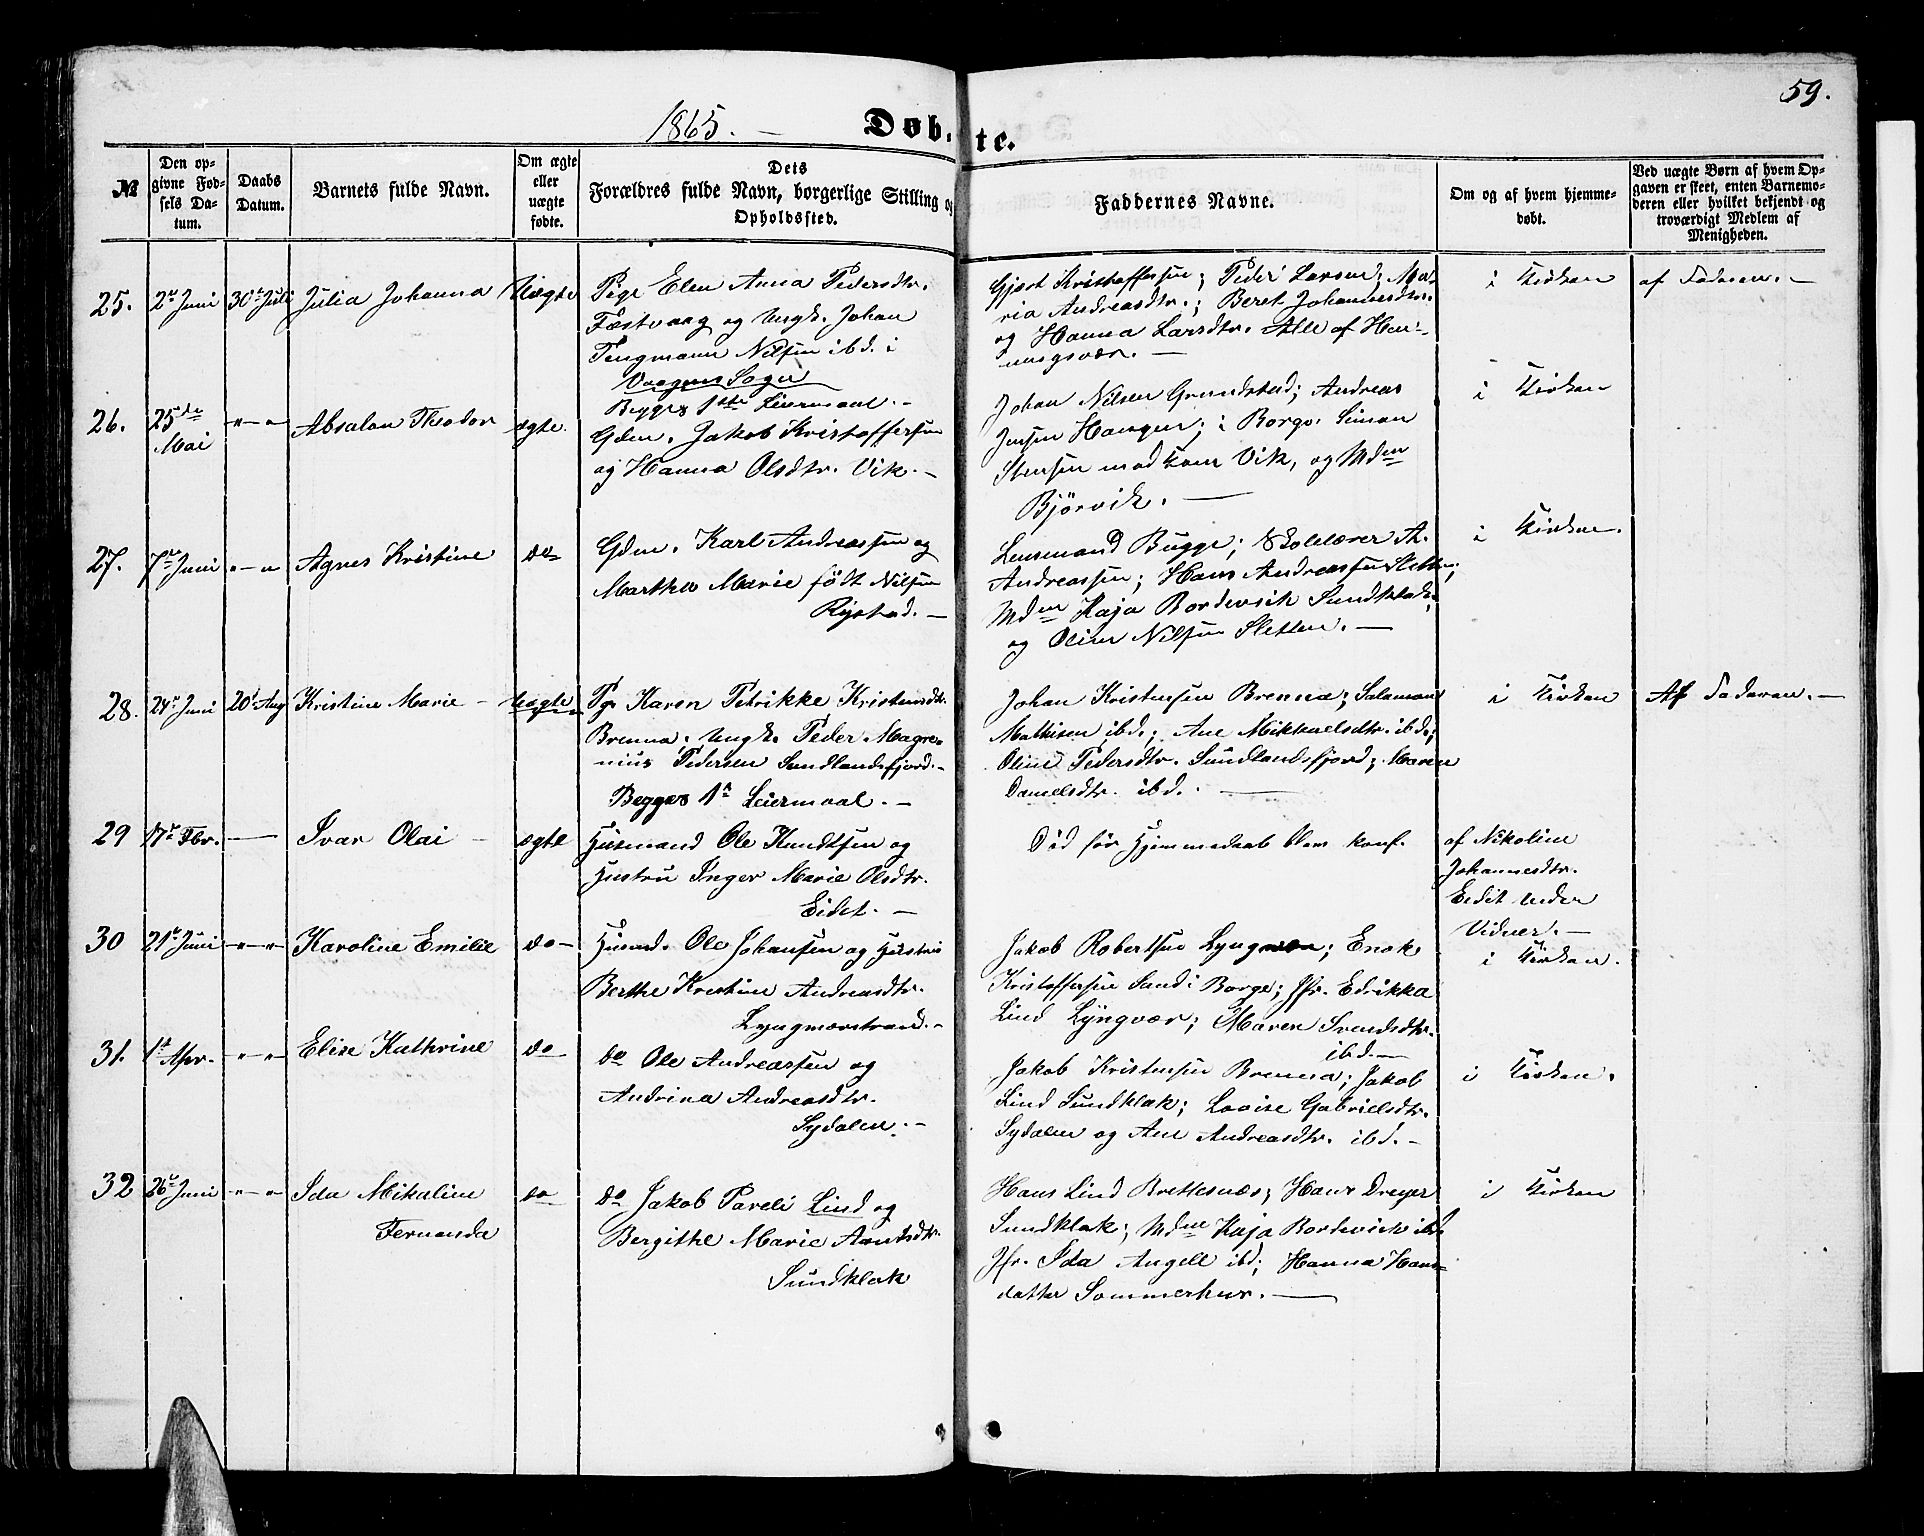 59.
1865. — Døb-te.
№
Den op-
givne Fød-
sels Da-
tum.
Daabs
Datum.
Barnets fulde Navn.
Om ægte
eller
uægte
fødte.
Dets
Forældres fulde Navn, borgerlige Stilling og
Opholdssted.
Faddernes Navne.
Om og af hvem hjemme-
døbt.
Ved uægte Børn af hvem Op-
gaven er skeet, enten Barnemo-
deren eller hvilket bekjendt og
troværdigt Medlem af
Menigheden.
25. 2 Juni 30te Juli Julia Johanna Uægte
Pige Elen Anna Pedersdtr.
Fæstvaag og Ungk. Johan
Tengmann Nilsen ibd. i
Vaagens Sogn
Begges 1ste Leiermaal. —
Gjert Kristoffersen; Peder Larsen; Ma-
ria Andreasdtr.; Beret Johannesdtr.
og Hanna Larsdtr. Alle af Hen-
ningsvær. —
i Kirken
af Faderen. —
26. 25de Mai -"- Absalon Theodor ægte.
Gdm. Jakob Kristoffersen
og Hanna Olsdtr. Vik. —
Johan Nilsen Grundstad; Andreas
Jensen Haugen; i Borge. Simon
Stensen med Kone Vik, og Mdm
Bjørvik. —
i Kirken
27. 7de Juni -"- Agnes Kristine do
Gdm. Karl Andreassen og
Marthea Marie født Nilsen
Rystad. —
Lensmand Bugge; Skolelærer A.
Andreassen; Hans Andreassen Sletten;
Mdm Kaja Bordevick Sundklak;
og Oline Nilsen Sletten. —
i Kirken.
28. 24 Juni 20 Aug Kristine Marie — Uægte
Pg. Karen Petrikke Kristensdtr.
Brenna; Ungk. Peder Magre-
nius Pedersen Sundlandsfjord. —
Begges 1ste Leiermaal. —
Johan Kristensen Brenna; Salamon
Mathisen ibd.; Ane Mikkaelsdtr. ibd.;
Oline Pedersdtr. Sundlandsfjord; Maren
Danielsdtr. ibd. —
i Kirken
Af Faderen. —
29 17 Fbr. — Ivar Olai — ægte
Husmand Ole Knudtsen og
Hustru Inger Marie Olsdtr.
Eidet. —
Død før Hjemmedaab blev konf.
af Nikoline
Johannesdtr.
Eidet under
Vidner. —
30 21 Juni -"- Karoline Emilie do —
Husmd. Ole Johansen og Hustru
Berthe Kristine Andreasdtr.
Lyngværstrand. —
Jakob Robertsen Lyngvær; Enok
Kristoffersen Sand i Borge; Jfr. Edrikka
Lind Lyngvær; Maren Svendsdtr.
ibd. —
i Kirken.
31. 1st Apr. -"- Elise Kathrine do
do Ole Andreassen og
Andrina Andreasdtr.
Sydalen. —
Jakob Kristensen Brenna; Jakob
Lind Sundklak; Lovise Gabrielsdtr.
Sydalen og Ane Andreasdtr. ibd. —
i Kirken.
32 26 Juni -"- Ida Mikaline
Fernanda
do
do Jakob Pareli Lind og
Bergithe Marie Arntsdtr.
Sundklak
Hans Lind Brettesnæs; Hans Dreyer
Sundklak; Mdm Kaja Bordevick ibd.
Jfr. Ida Angell ibd; Hanna Hans-
datter Sommerhus. —
i Kirken